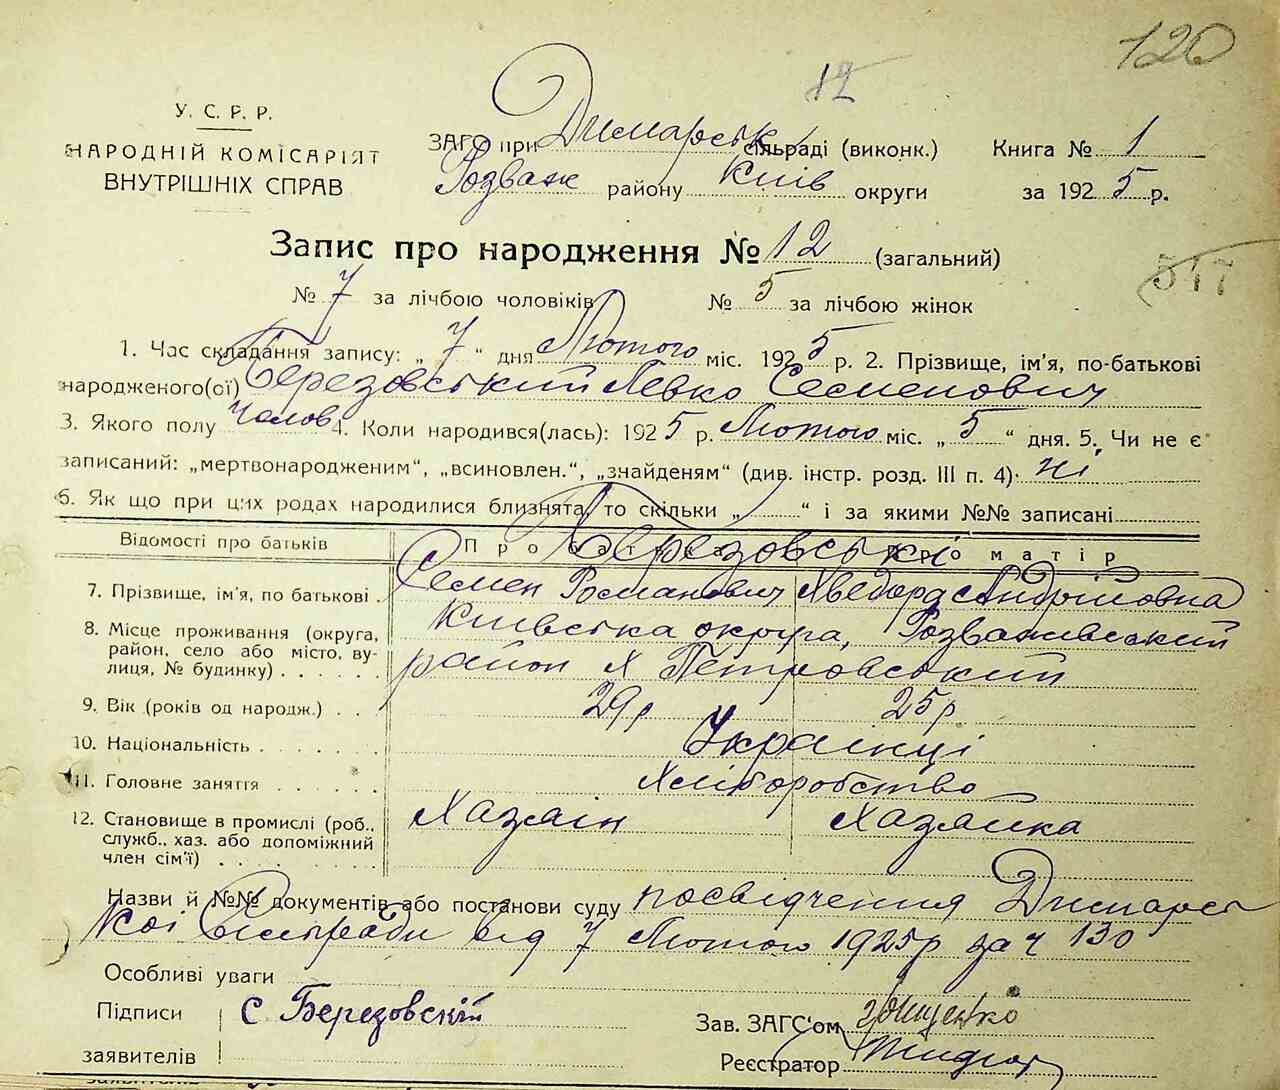 120
12
У. С. Р. Р.
НАРОДНІЙ КОМІСАРІЯТ
ВНУТРІШНІХ СПРАВ
ЗАГС при Димарськ сільраді (виконк.) Книга № 1
Розваж району Київ округи за 1925 р.
Запис про народження № 12 (загальний)
517
№ 7 за лічбою чоловіків № 5 за лічбою жінок
1. Час складання запису: „ 7 “ дня Лютого міс. 1925 р. 2. Прізвище, ім'я, по-батькові
народженого(ої) Березовський Левко Семенович
3. Якого полу чолов 4. Коли народився(лась): 1925 р. Лютого міс. „ 5 “ дня. 5. Чи не є
записаний: „мертвонародженим“, „всиновлен.“, „знайденям“ (див. інстр. розд. III п. 4) ні
6. Як що при цих родах народилися близнята, то скільки „ “ і за якими №№ записані
Відомості про батьків Про батька Про матір
Березовські
7. Прізвище, ім'я, по батькові . Семен Романович Хведора Андріївна
8. Місце проживання (округа, Київська округа, Розважівський
район, село або місто, ву-
лиця, № будинку) . . . . . . район х Петровський
9. Вік (років од народж.) . . 29р 25р
10. Національність . . . . . . Українці
11. Головне заняття . . . . . Хліборобство
12. Становище в промислі (роб., Хазяїн Хазяйка
служб., хаз. або допоміжний
член сім'ї) . . . . . . . .
Назви й №№ документів або постанови суду посвідчення Димарсь
кої Сільради від 7 Лютого 1925р за ч 130
Особливі уваги
Підписи С. Березовскій Зав. ЗАГС'ом
заявителів Реєстратор